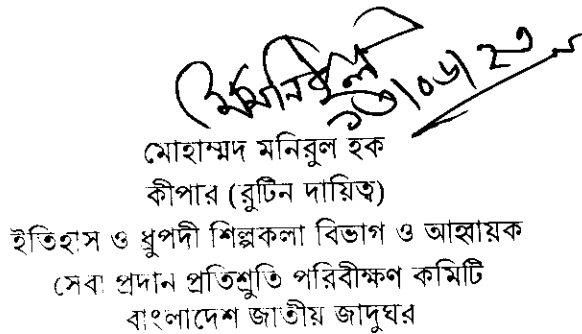 মোহাম্মদ মনিরুল হক
কীপার (রুটিন দায়িত্ব)
ইতিহাস ও ধ্রুপদী শিল্পকলা বিভাগ ও আহ্বায়ক
সেবা প্রদান প্রতিশ্রুতি পরিবীক্ষণ কমিটি
বাংলাদেশ জাতীয় জাদুঘর